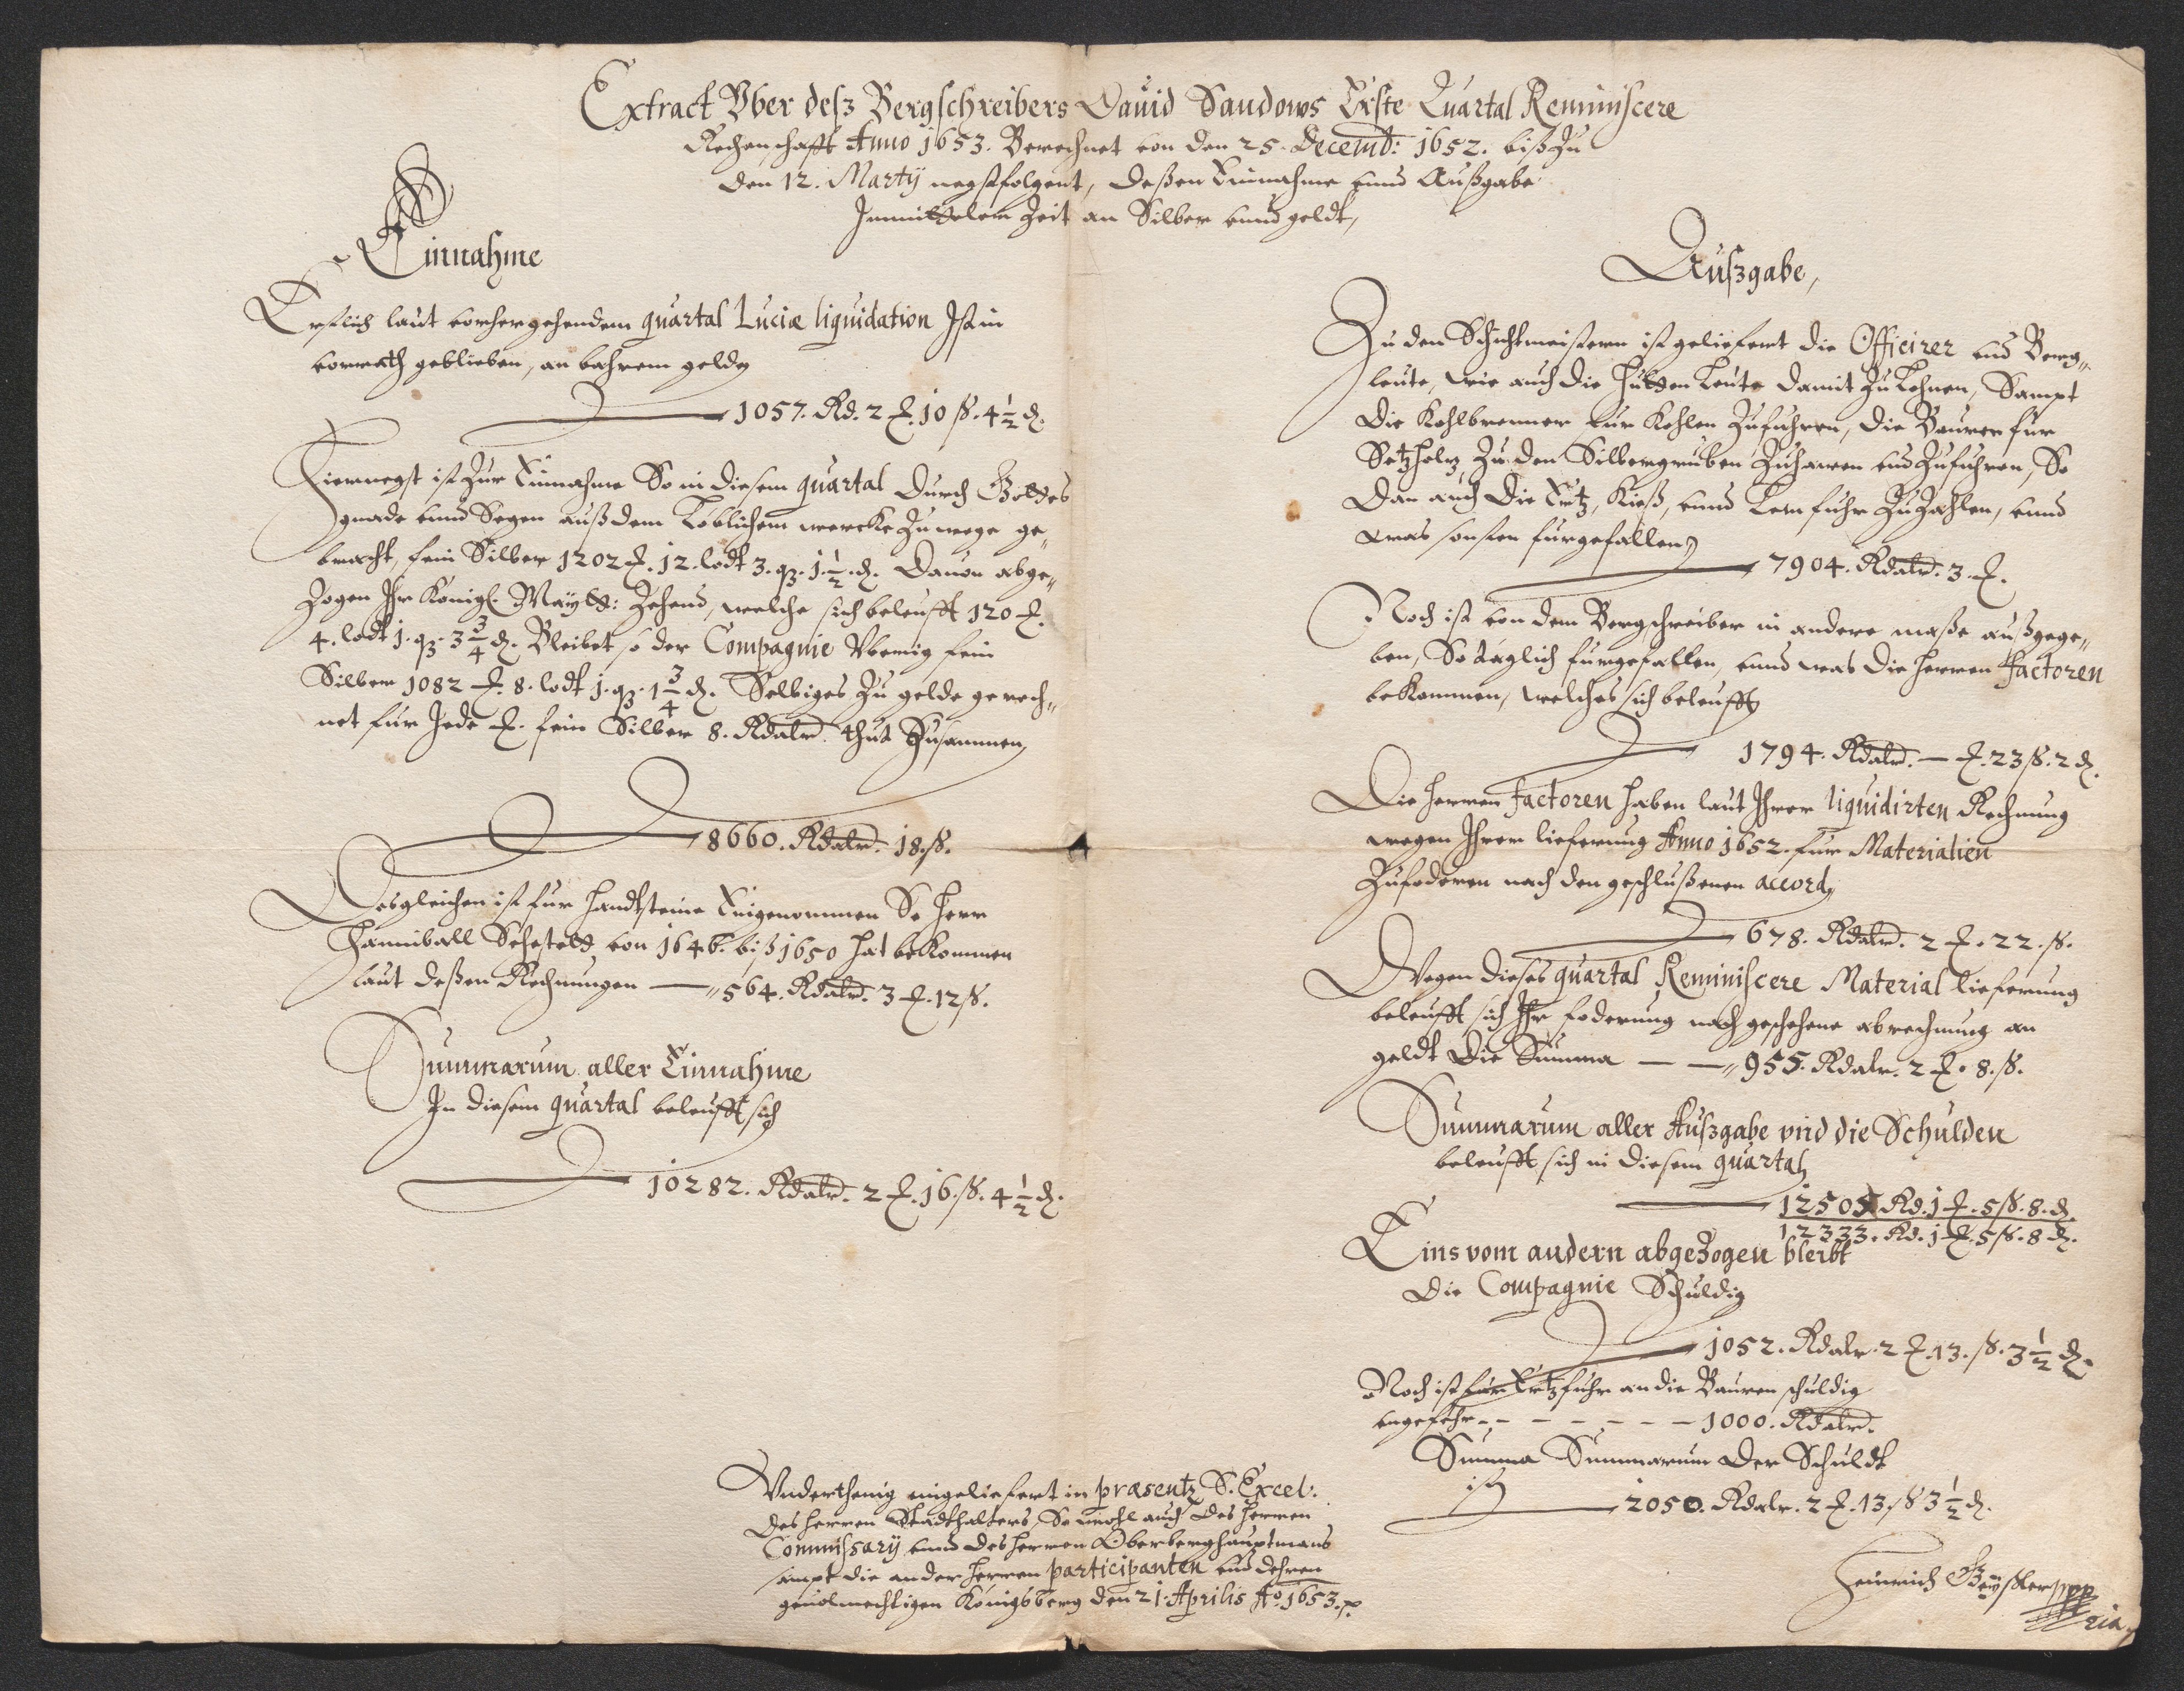 Extract Vber desz Bergschreibers Dauid Sandows Erste Quartal Reminiscere
Rechenschafft Anno 1653. Berechnet von den 25. Decemb: 1652. bisz Zu
den 12. Martÿ negstfolgent, deszen Einnahme vnnd Auszgabe
Immittelern Zeit an Silber vnnd geldt,
Einnahme
Erstlich laut vorhergehendem quartal Luciæ liquidation Ist in
vorrath geblieben, an bahrem gelde
1057. Rd. 2 ℔. 10 ß. 4½ ₰.
Hiernegst ist Zur Einnahme So in diesem quartal durch Gottes
gnade vnnd Segen ausz dem Löblichem wercke Zuwege ge„
bracht, fein Silber 1202 ℔. 12. lodt 3. q3. 1½ ₰. Dauon abge„
Zogen Ihr Königl. Maÿtt: Zehend, welche sich beleufft 120 ℔.
4. lodt 1. q3. 3¾ ₰. Bleibet so der Compagnie Vberig fein
Silber 1082 ℔. 8. lodt 1. q3. 1¾ ₰. Selbiges Zu gelde gerech„
net für Jede ℔. fein Silber 8. Rdalr. thut Zusammen
8660. Rdalr. 18. ß.
Desgleichen ist für handtsteine Eingenommen So Herr
Hanniball Sehestedt von 1646. bisz 1650 hat bekommen
laut deszen Rechnungen — „ 564. Rdalr. 3 ℔. 12 ß.
Summarum aller Einnahme
In diesem quartal beleufft sich
10282. Rdalr. 2 ℔. 16. ß. 4½ ₰.
Auszgabe,
Zu den Schichtmeistern ist geliefert die Officirer vnd Berg„
leute, wie auch die Hütten Leute damit Zu Lohnen, Sampt
die Kohlbrenner für Kohlen Zufuhren, die Bauren für
Setzholtz Zu den Silbergruben Zuhawen vnd Zufuhren, So
dan auch die Ertz, Kiesz, vnnd Lein fuhr ZuZahlen, vnnd
was sonsten fürgefallen
7904. Rdalr. 3 ℔.
Noch ist von dem Bergschreiber in andere masze auszgege„
ben, So täglich fürgefallen, vnnd was die Herren Factoren
bekommen, welches sich beleufft
1794. Rdalr. — ℔. 23 ß. 2 ₰.
Die Herren Factoren haben laut Ihrer liquidirten Rechnung
wegen Ihrer lieferung Anno 1652. für Materialien
Zufoderen nach den geschluszenen accord,
678. Rdalr. 2 ℔. 22. ß.
Wegen dieses quartal Reminiscere Material lieferung
beleufft sich Ihr foderung nach geschehene abrechnung an
geldt die Summa — — „ 955. Rdalr. 2 ℔. 8. ß.
Summarum aller Auszgabe vnd die Schulden
beleufft sich in diesem quartal
12505 Rd. 1 ℔. 5 ß. 8. ₰.
12333. Rd. 1 ℔. 5 ß. 8 ₰.
Eins vom andern abgezogen bleibt
die Compagnie Schuldig
1052. Rdalr. 2 ℔. 13. ß. 3½ ₰.
Noch ist für Ertzfuhr an die Bauren schuldig
vngefehr - - - - - - 1000. Rdalr.
Summa Summarum der Schuldt
ist
2050. Rdalr. 2 ℔. 13. ß 3½ ₰.
Vnderthenig eingeliefert in præsentz S. Excel.
des Herren Stadthalters, So wohl auch des Herren
Commissarÿ vnnd des Herren Oberberghauptmans
sampt die ander Herren participanten vnd dehren
geuolmechtigen Königsberg den 21. Aprilis Ao. 1653.
Heinrich
ria